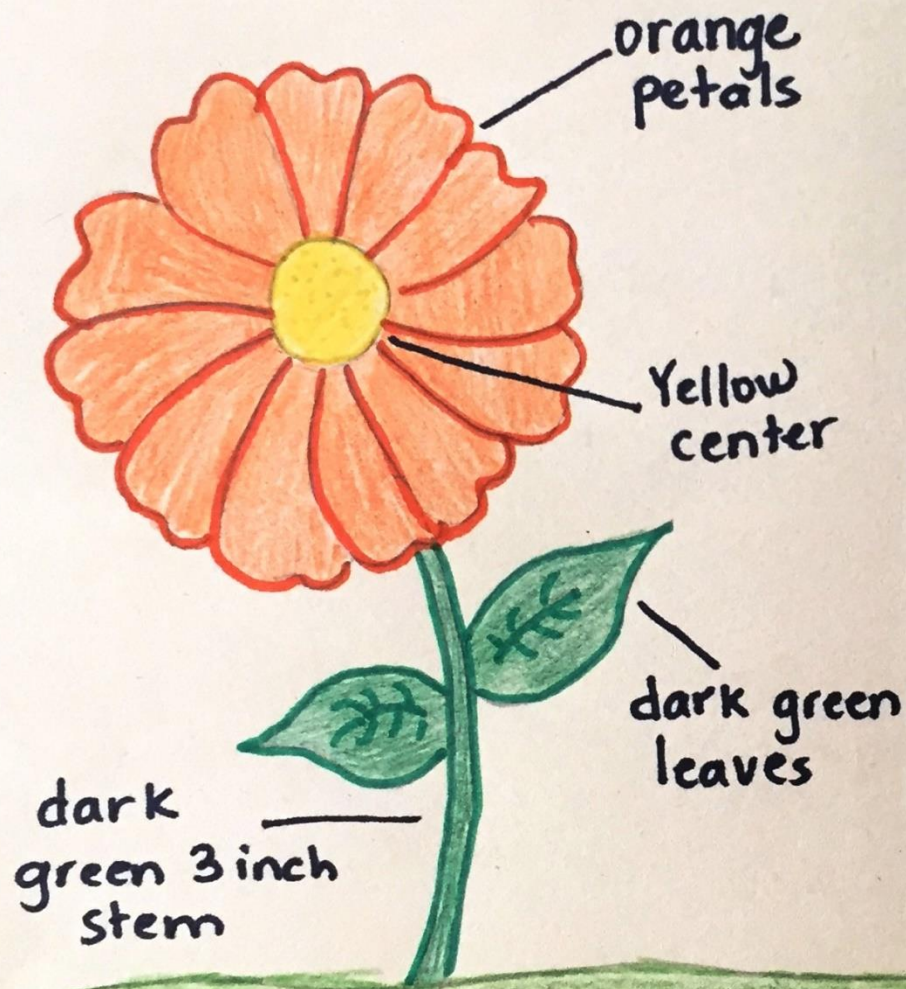 orange
petals
Yellow
center
dark green
leaves
dark
green 3 inch
stem